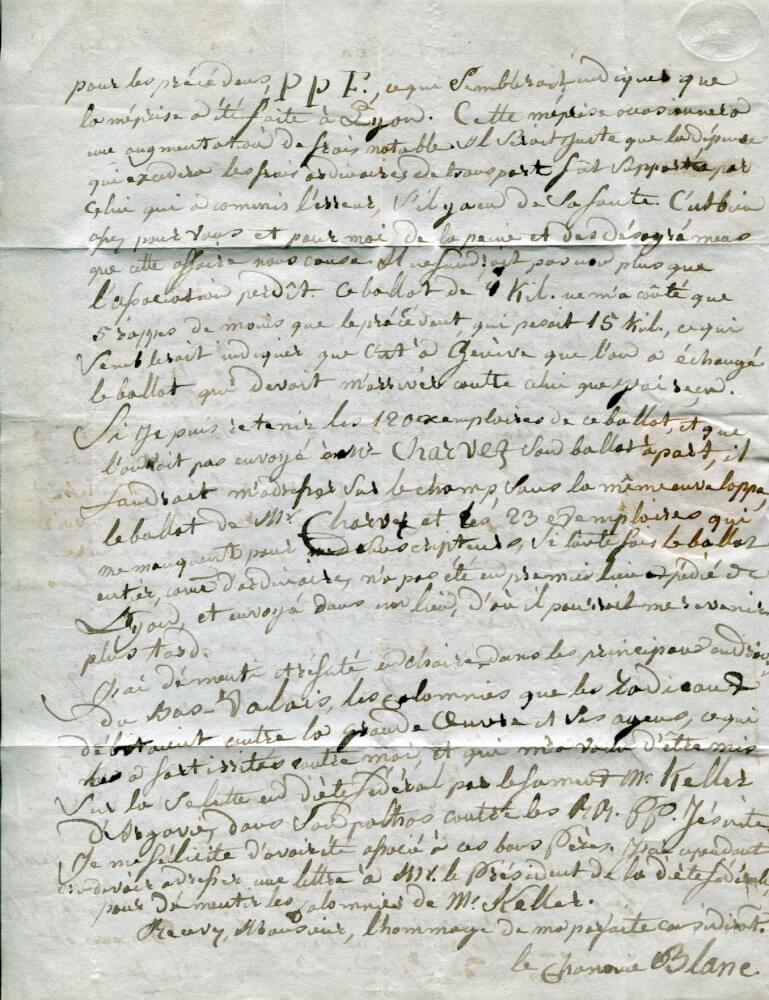 pour les précédens, P P F., ce qui semblerait indiquer que
la méprise a été faite à Lyon. Cette méprise occasionnera
une augmentation de frais notable. Il serait juste que la dépense
qui excédera les frais ordinaires de transport fût supportée par
celui qui a commis l'erreur, s'il y a eu de sa faute. C'est bien
assez pour vous et pour moi de la peine et des désagrémens
que cette affaire nous cause. Il ne faudrait pas non plus que
l'association perdît. Ce ballot de Kil. ne m'a coûté que
5 rappes de moins que le précédent, qui pesait 15 Kil., ce qui
semblerait indiquer que c'est à Genève que l'on a échangé
le ballot qui devait m'arriver contre celui que j'ai reçu.
Si je puis retenir les 120 exemplaires de ce ballot, et que
l'on ait pas envoyé à Mr Charvez son ballot à part, il
faudrait m'adresser sur le champ, sous la même enveloppe,
le ballot de Mr. Charvez et les 23 exemplaires qui
me manquent pour souscripteurs, si toutefois le ballot
entier, comme d'ordinaire, n'a pas été en premier lieu expédié de
Lyon, et envoyé dans un lieu, d'où il pourrait me revenir
plus tard.
J'ai démenti et réfuté en chaire dans les principaux endroits
du Bas-Valais, les calomnies que les radicaux
débitaient contre la grande Œuvre et ses agens, ce qui
les a fort irrités contre moi, et qui m'a valu d'être mis
sur la sellette en diète fédéral par le fameux Mr. Keller
d'Argovie, dans son pathos contre les RR. PP. Jésuites.
Je me félicite d'avoir été associé à ces bons Pères. J'ai cependant
cru devoir adresser une lettre à Mr. le Président de la diète fédérale,
pour démentir les calomnies de Mr. Keller.
Recevez, Monsieur, l'hommage de ma parfaite considérat.
le Chanoine Blanc